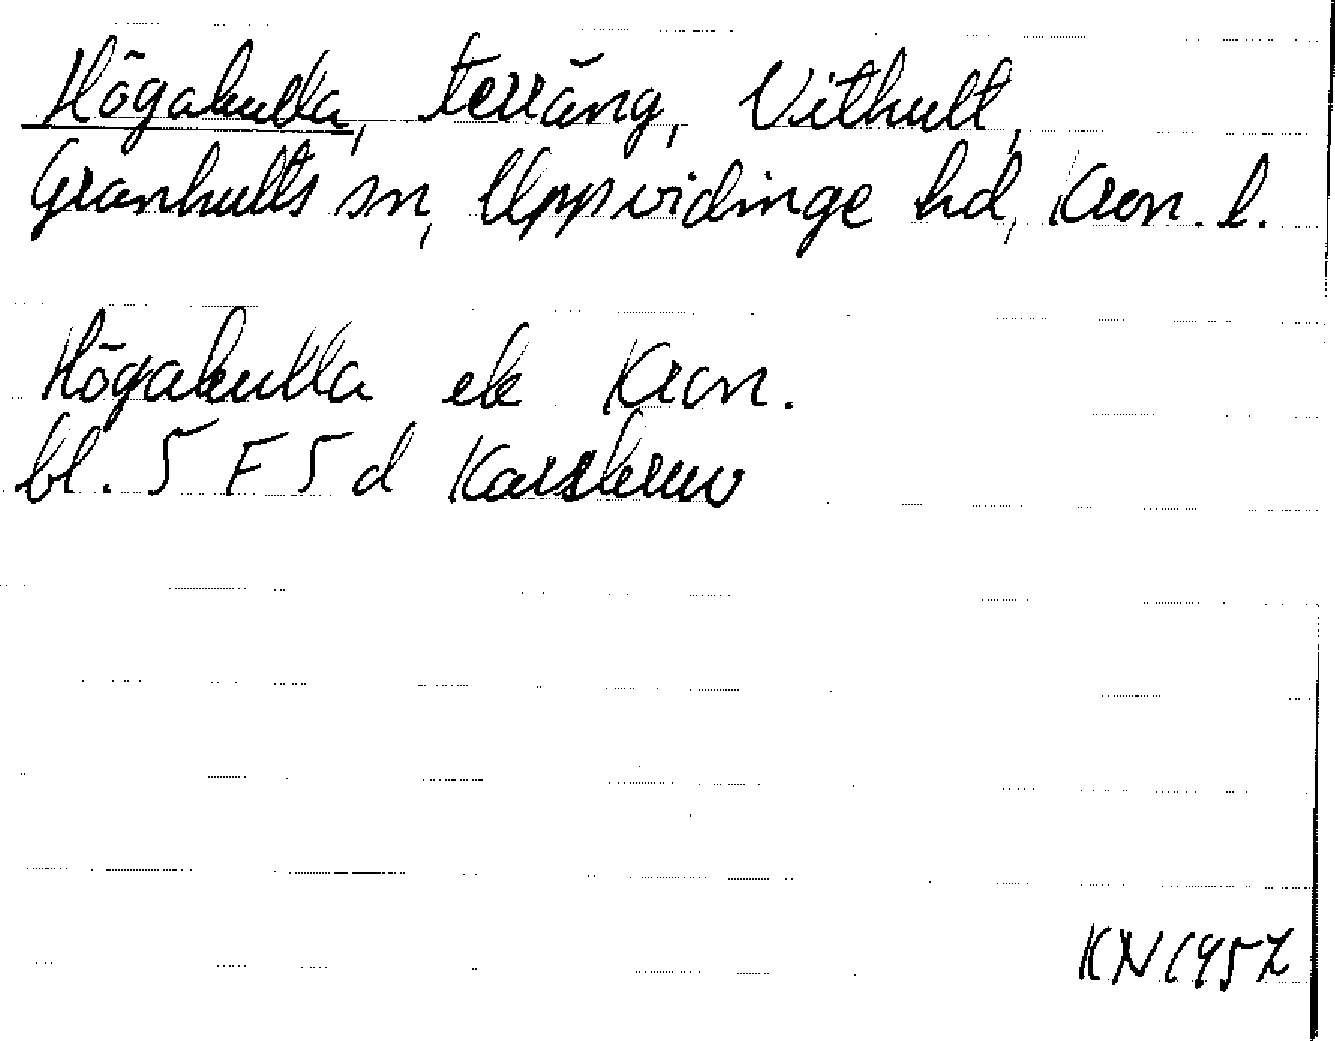 Högakulla, terräng, Vithult,
Granhults sn, Uppvidinge hd, Kron. l.
Högakulla ek Kron.
bl. 5 F 5 d Karskruv
KN 1957